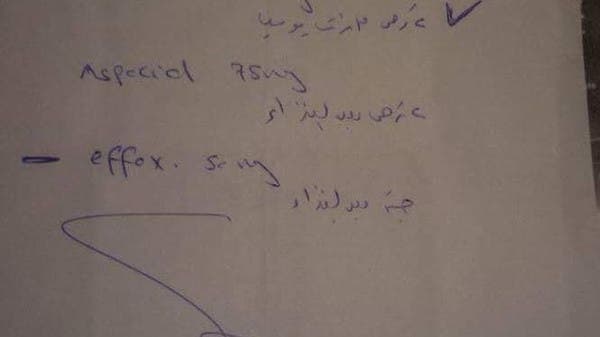 قرص مرات يوميا
Aspocid 75mg
قرص بعد الغذاء
- effox. 50 mg
حبة بعد الغذاء